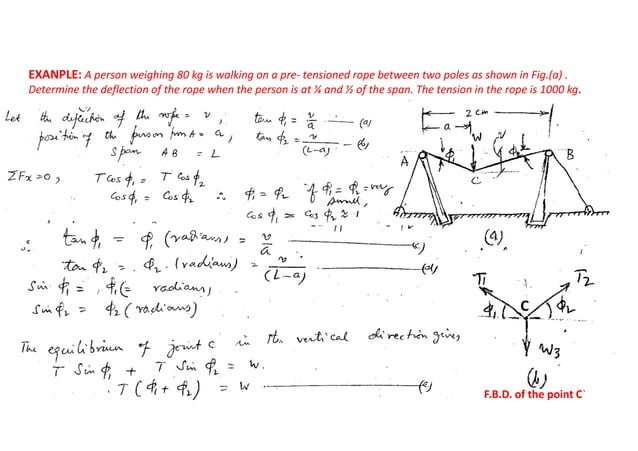 EXANPLE: A person weighing 80 kg is walking on a pre- tensioned rope between two poles as shown in Fig.(a) .
Determine the deflection of the rope when the person is at ¼ and ½ of the span. The tension in the rope is 1000 kg.
Let the deflection of the rope = v ,
position of the person from A = a ,
span AB = L
tan ϕ₁ = v/a (a)
tan ϕ₂ = v/(L-a) (b)
ΣFx=0, T Cos ϕ₁ = T Cos ϕ₂
Cos ϕ₁ = Cos ϕ₂ ∴ ϕ₁ = ϕ₂ if ϕ₁ = ϕ₂ = very small,
cos ϕ₁ ≃ cos ϕ₂ ≈ 1
∴ tan ϕ₁ = ϕ₁ (radians) = v/a (c)
tan ϕ₂ = ϕ₂ (radians) = v/(L-a) (d)
Sin ϕ₁ = ϕ₁ (= radians,
Sin ϕ₂ = ϕ₂ (radians)
The equilibrium of joint C in the vertical direction gives
T Sin ϕ₁ + T Sin ϕ₂ = W.
T (ϕ₁ + ϕ₂) = W (e)
2 cm
a
W
v
A
ϕ₁
ϕ₂
B
C
(a)
T₁
T₂
C
ϕ₁
ϕ₂
W₃
(b)
F.B.D. of the point C`